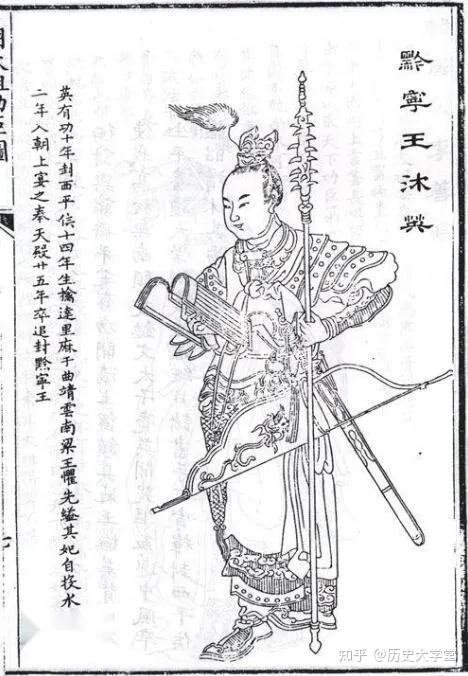 黔寧王沐英
英有功十年封西平侯十四年生擒達里麻于曲靖雲南梁王懼先縊其妃自投水
二年入朝上宴之奉天殿廿五年卒追封黔寧王
明太祖功臣圖
七
知乎 @历史大学堂